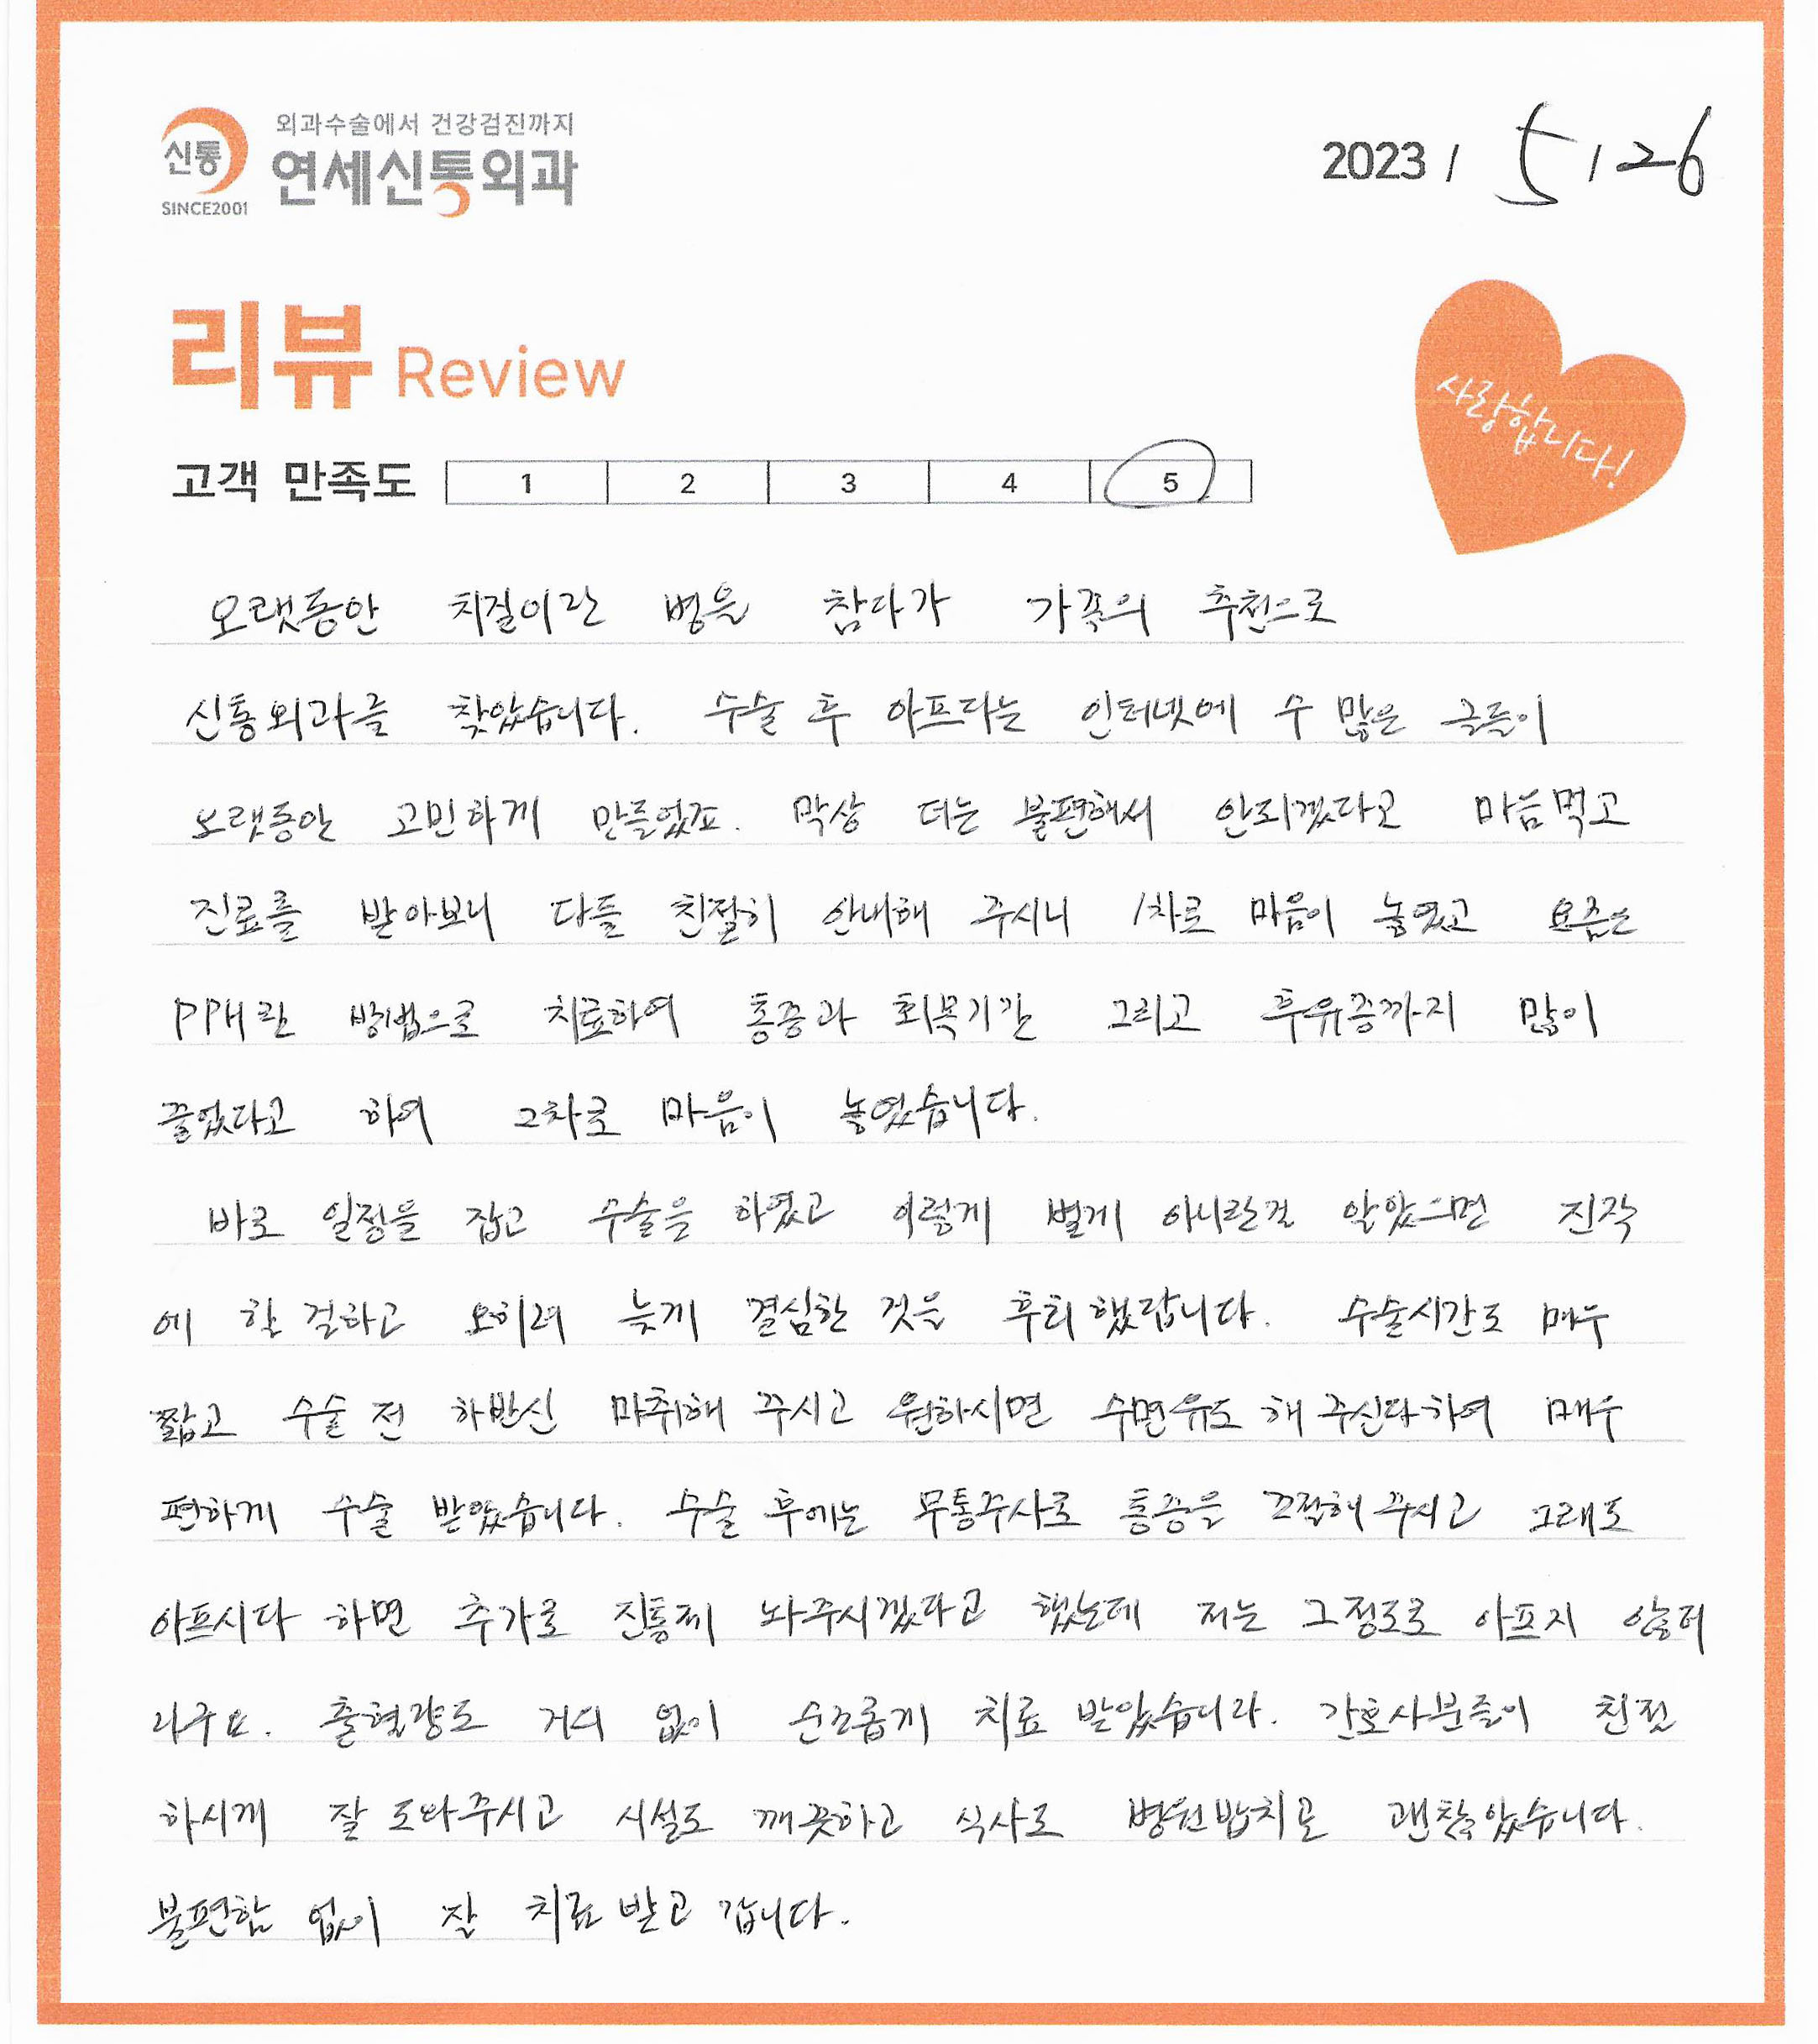 신통
SINCE2001
외과수술에서 건강검진까지
연세신통외과
2023 / 5 / 26
리뷰 Review
사랑합니다!
고객 만족도 1 2 3 4 5
오랫동안 치질이란 병을 참다가 가족의 추천으로
신통외과를 찾았습니다. 수술 후 아프다는 인터넷에 수 많은 글들이
오랫동안 고민하게 만들었죠. 막상 더는 불편해서 안되겠다고 마음먹고
진료를 받아보니 다들 친절히 안내해 주시니 1차로 마음이 놓였고 요즘은
PPH란 방법으로 치료하여 통증과 회복기간 그리고 후유증까지 많이
줄었다고 하여 2차로 마음이 놓였습니다.
바로 일정을 잡고 수술을 하였고 이렇게 별게 아니란걸 알았으면 진작
에 할 걸하고 오히려 늦게 결심한 것을 후회했답니다. 수술시간도 매우
짧고 수술 전 하반신 마취해 주시고 원하시면 수면유도 해 주신다하여 매우
편하게 수술 받았습니다. 수술 후에는 무통주사로 통증을 조절해주시고 그래도
아프시다 하면 추가로 진통제 놔주시겠다고 했는데 저는 그정도로 아프지 않더
라구요. 출혈량도 거의 없이 순조롭게 치료 받았습니다. 간호사분들이 친절
하시게 잘 도와주시고 시설도 깨끗하고 식사도 병원밥치곤 괜찮았습니다.
불편함 없이 잘 치료 받고 갑니다.